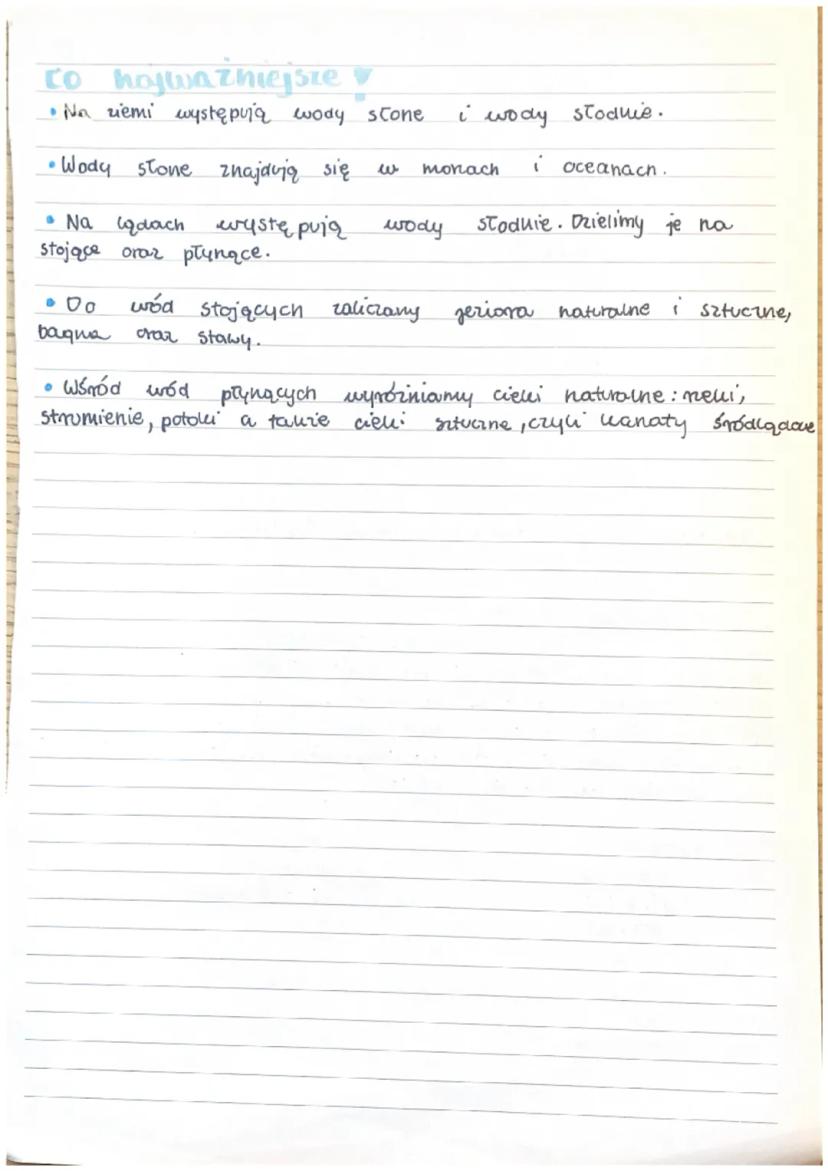 co najważniejsze!
• Na ziemi występują wody słone i wody słodkie.
• Wody słone znajdują się w morzach i oceanach.
• Na lądach występują wody słodkie. Dzielimy je na
stojące oraz płynące.
• Do wód stojących zaliczamy jeziora naturalne i sztuczne,
bagna oraz stawy.
• Wśród wód płynących wyróżniamy cieki naturalne: rzeki,
strumienie, potoki a także cieki sztuczne, czyli kanały śródlądowe